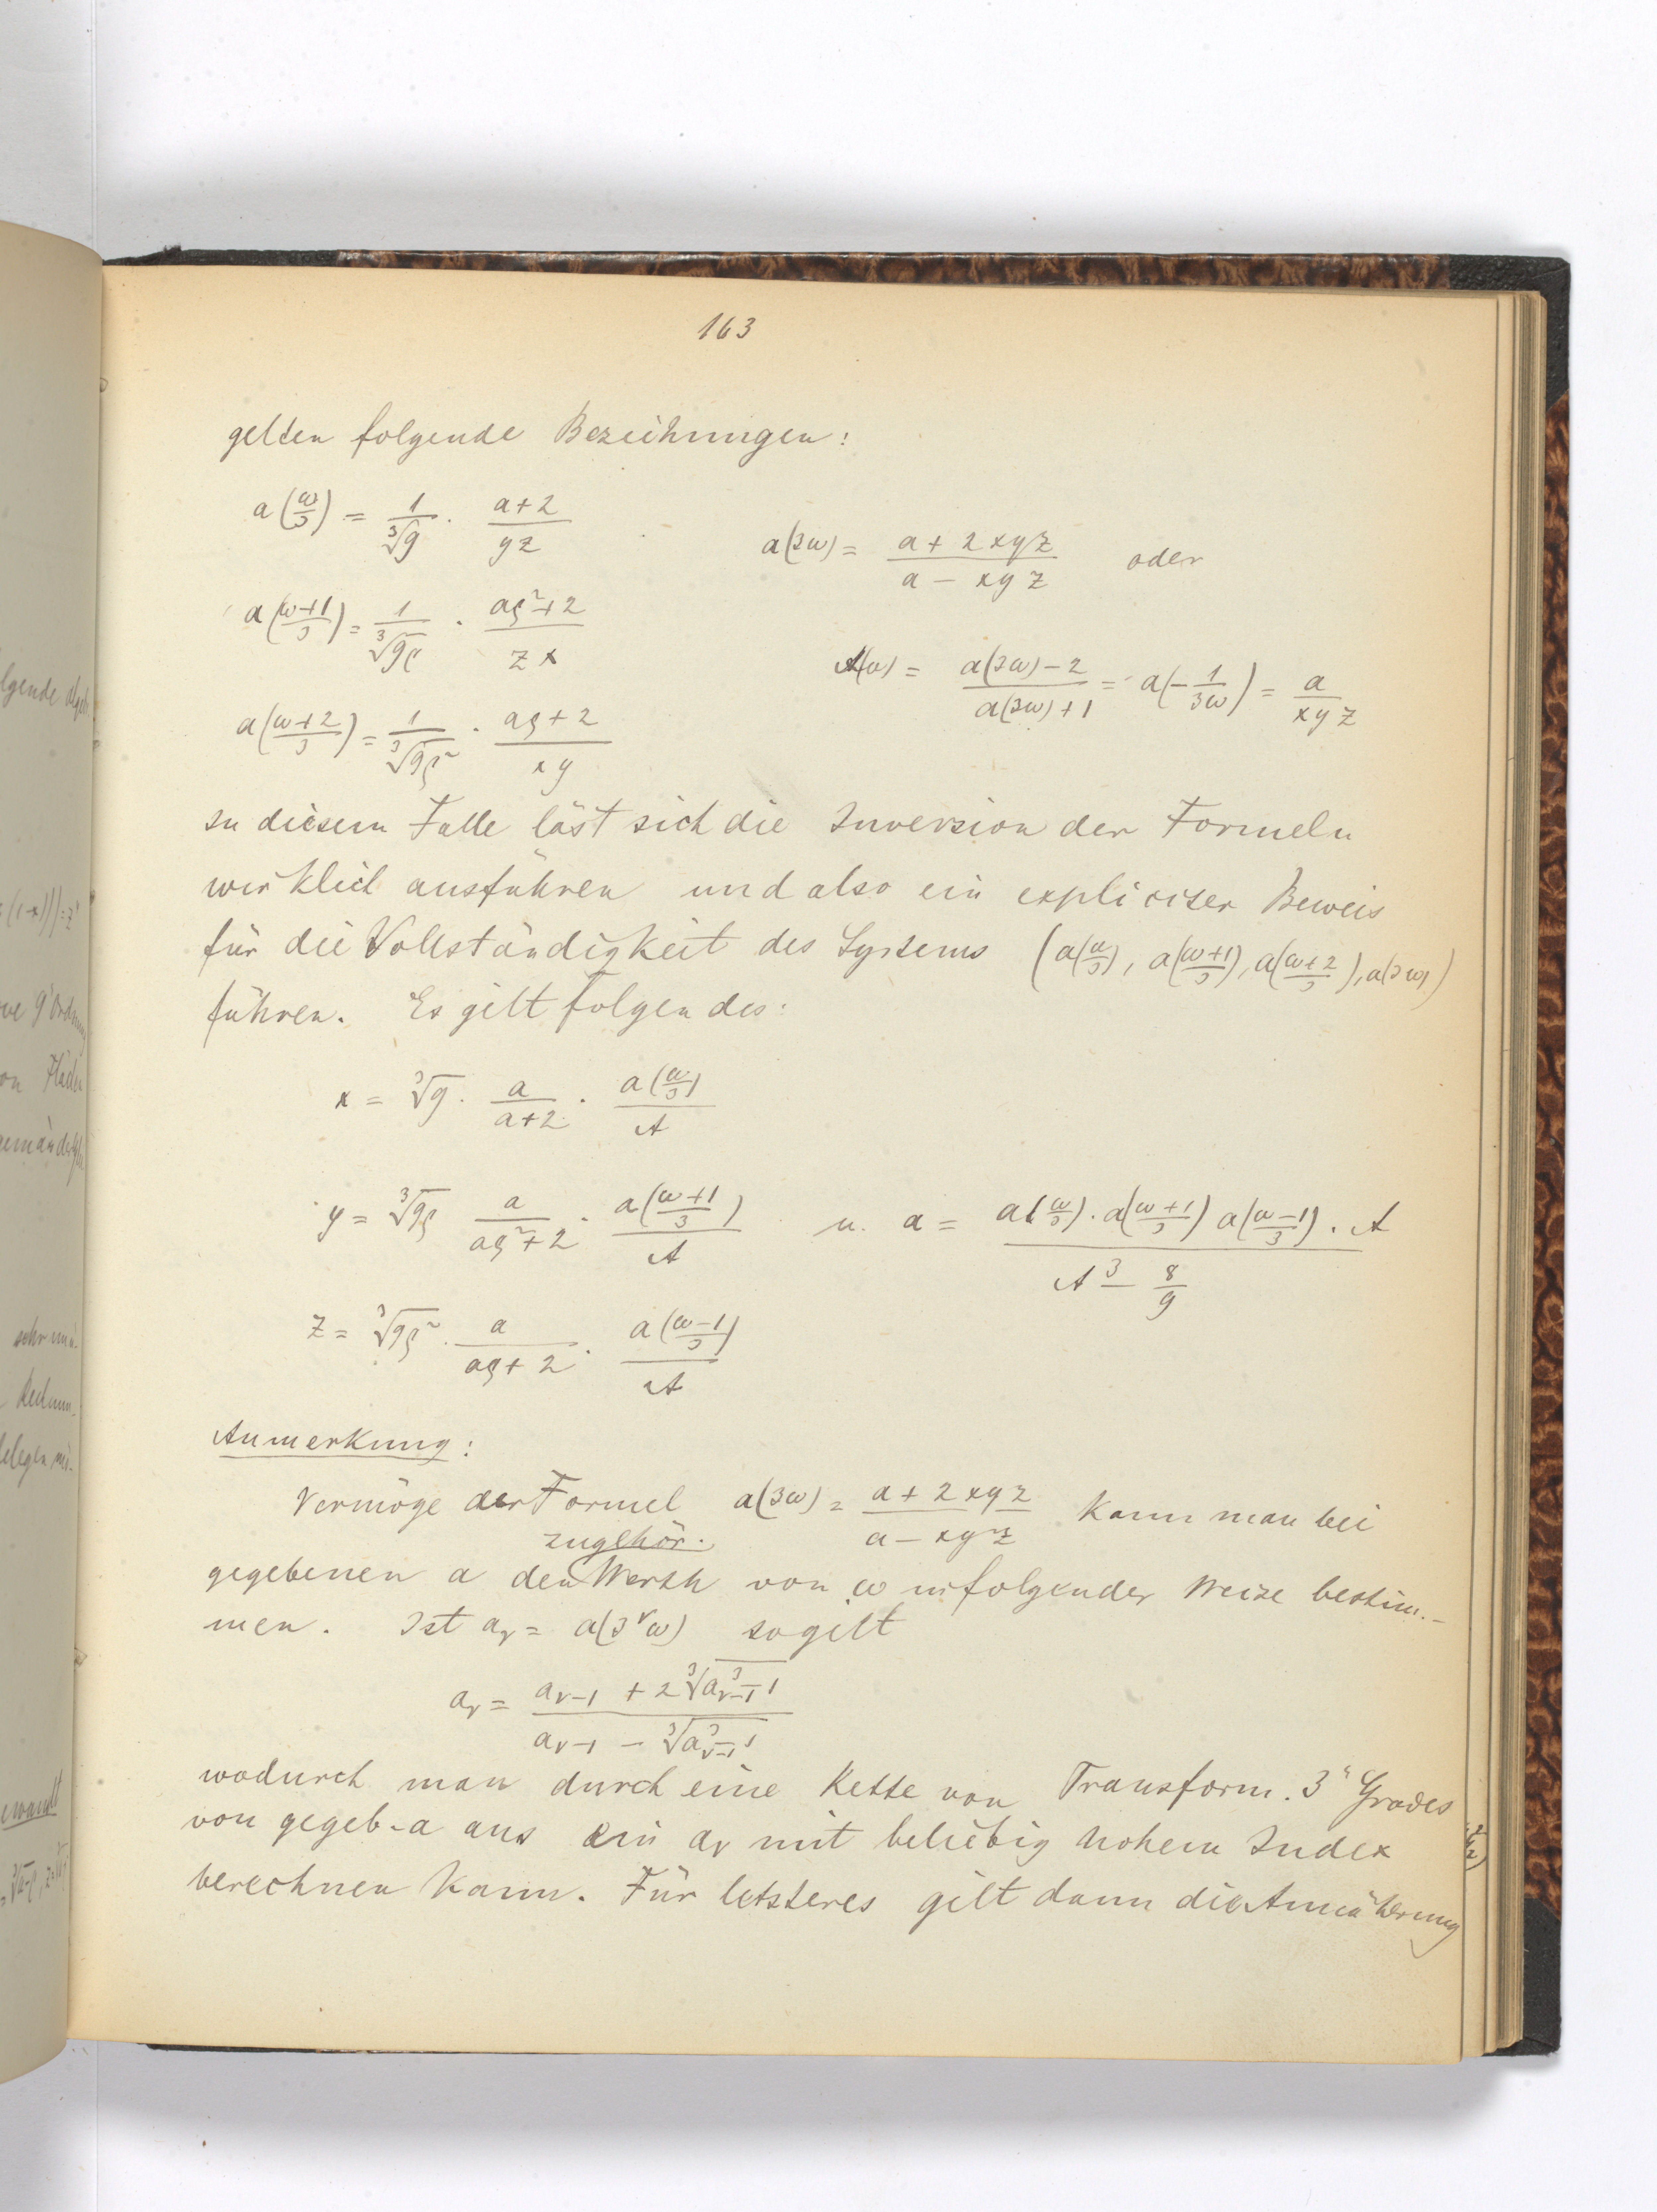 163
gelten folgende Bezeihungen:
a(ω/3) = 1/∛9 · (a+2)/(yz)
a(3ω) = (a + 2xyz)/(a − xyz) oder
a((ω+1)/3) = 1/∛(9ϱ) · (aϱ²+2)/(zx)
A(ω) = (a(3ω)−2)/(a(3ω)+1) = a(−1/(3ω)) = a/(xyz)
a((ω+2)/3) = 1/∛(9ϱ²) · (aϱ+2)/(xy)
In diesem Falle läst sich die Inversion der Formeln
wirklich ausführen und also ein expliciter Beweis
für die Vollständigkeit des Systems (a(ω/3), a((ω+1)/3), a((ω+2)/3), a(3ω))
führen. Es gilt folgendes:
x = ∛9 · a/(a+2) · a(ω/3)/A
y = ∛(9ϱ) a/(aϱ²+2) · a((ω+1)/3)/A u. a = (a(ω/3) · a((ω+1)/3) a((ω−1)/3) · A)/(A³ − 8/9)
z = ∛(9ϱ²) · a/(aϱ+2) · a((ω−1)/3)/A
Anmerkung:
Vermöge der Formel a(3ω) = (a + 2xyz)/(a − xyz) kann man bei
zugehör.
gegebenen a den Werth von ω in folgender Weise bestim-
men. Ist aᵥ = a(3ᵛω) so gilt
aᵥ = (aᵥ₋₁ + 2∛(a³ᵥ₋₁−1))/(aᵥ₋₁ − ∛(a³ᵥ₋₁−1))
wodurch man durch eine Kette von Transform. 3ⁿ Grades
von gegeb. a aus ein aᵥ mit beliebig hohem Index
berechnen kann. Für letzteres gilt dann die Annäherung